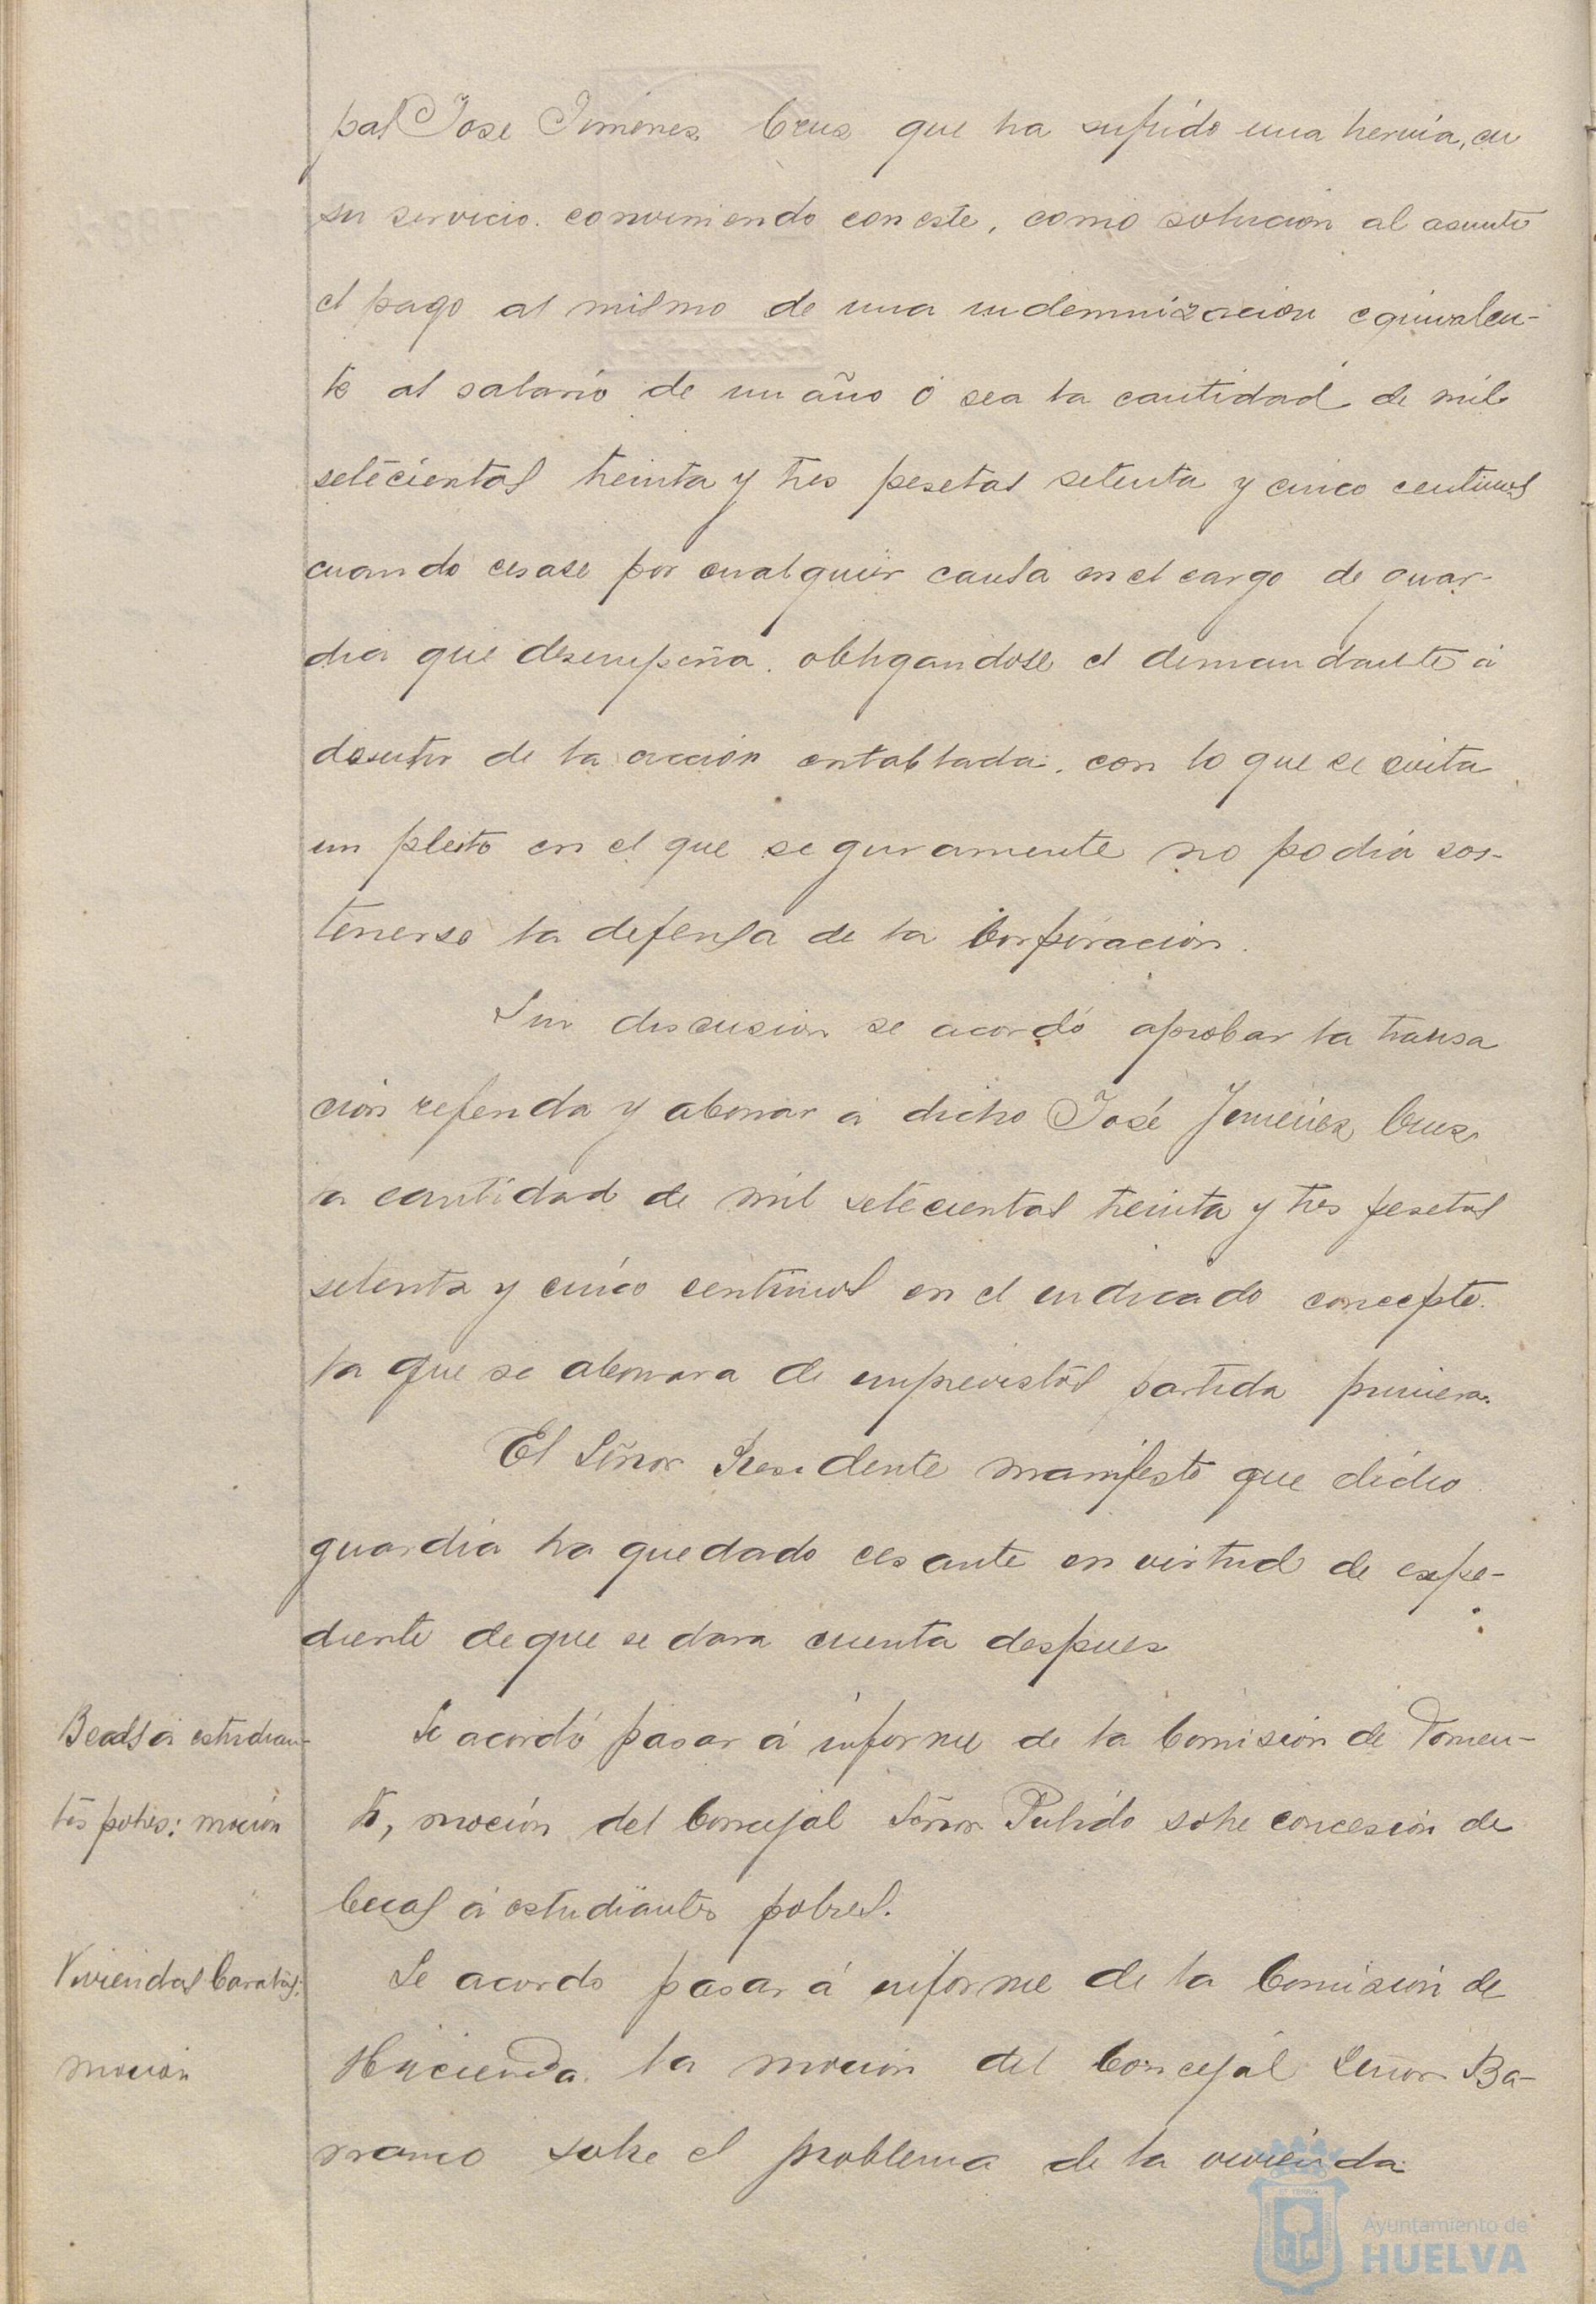 pal José Jiménez Cruz que ha sufrido una hernia, en
su servicio. conviniendo con este, como solucion al asunto
el pago al mismo de una indemnizacion equivalen-
te al salario de un año ó sea la cantidad de mil
setecientas treinta y tres pesetas setenta y cinco centimos
cuando cesase por cualquier causa en el cargo de guar-
dia que desempeña. obligandose el demandante á
desistir de la acción entablada. con lo que se evita
un pleito en el que seguramente no podia sos-
tenerse la defensa de la Corporación.
Sin discusion se acordó aprobar la transa
ción referida y abonar á dicho José Jimenez Cruz
la cantidad de mil setecientas treinta y tres pesetas
setenta y cinco centimos en el indicado concepto.
la que se abonara de imprevistos partida primera.
El Señor Presidente manifesto que dicho
guardia ha quedado cesante en virtud de expe-
diente de que se dara cuenta despues
Becas á estudian-
tes pobres: moción
Se acordó pasar á informe de la Comisión de Fomen-
to, moción del Concejal Señor Pulido sobre concesión de
becas á estudiantes pobres.
Viviendas baratas:
moción
Se acordo pasar á informe de la Comisión de
Hacienda la moción del Concejal Señor Ba-
rranco sobre el problema de la vivienda
Ayuntamiento de
HUELVA